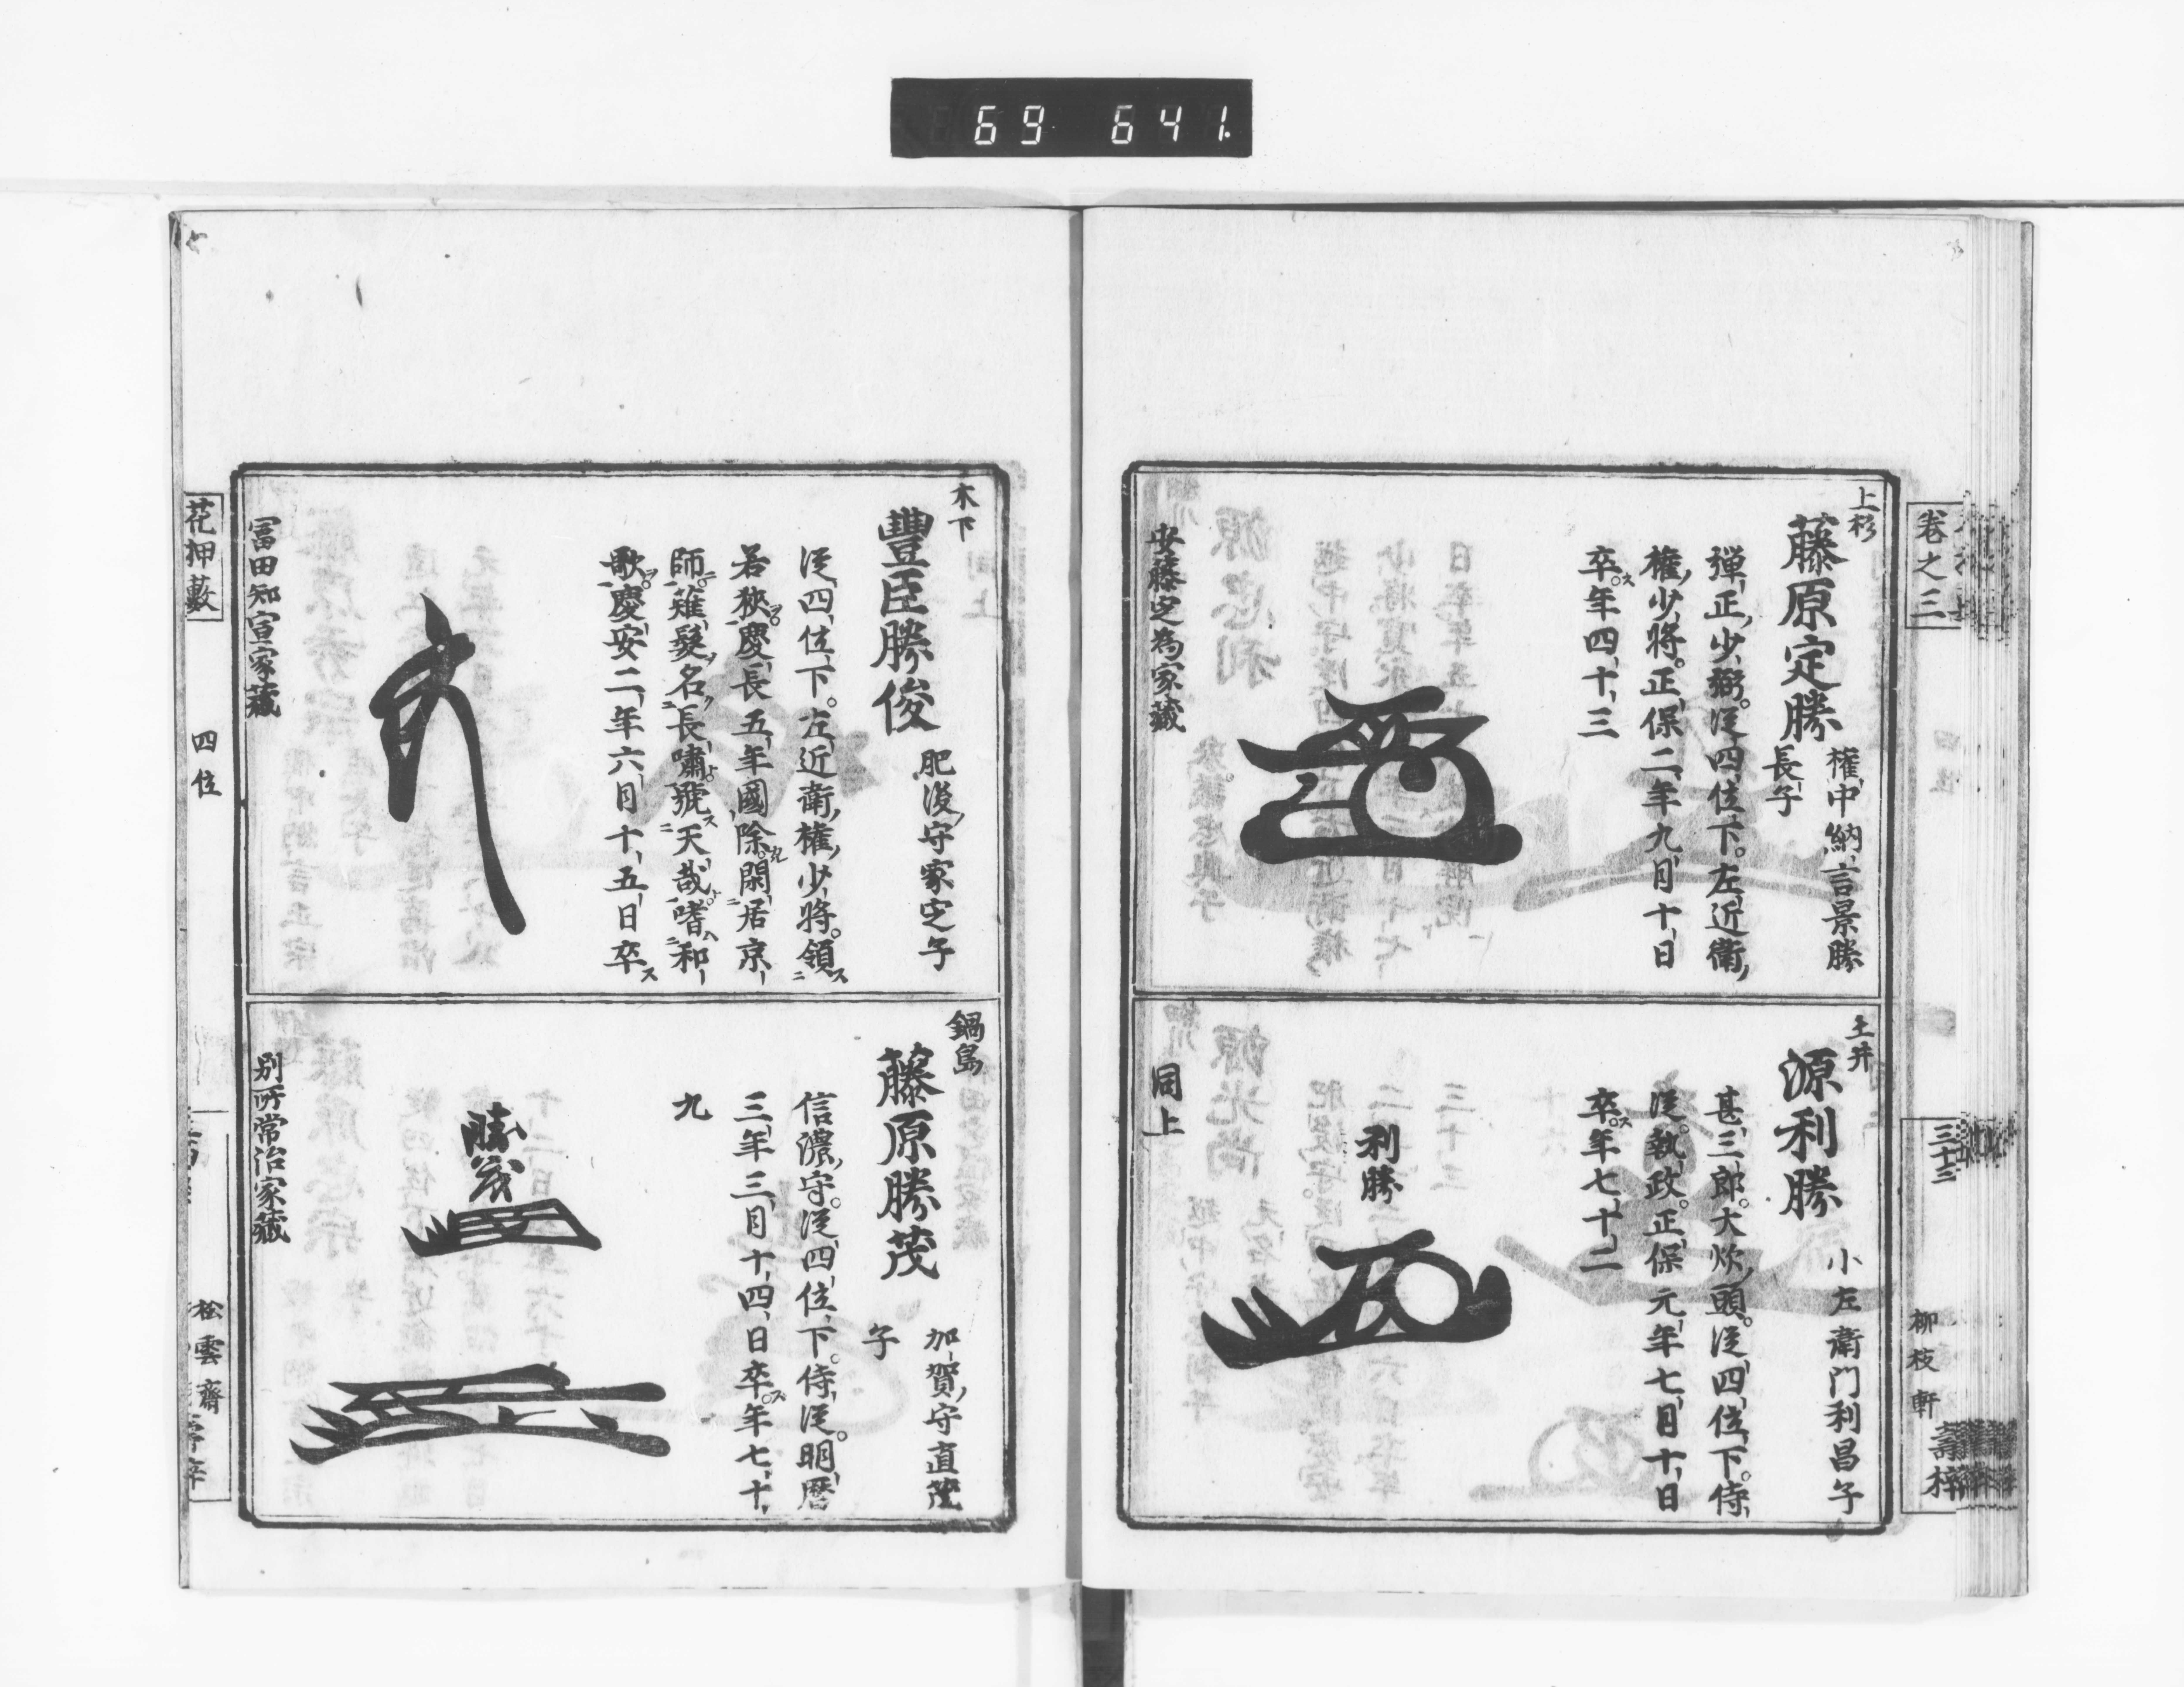 69 641.
卷之三
三十三
柳枝軒
上杉
藤原定勝
權中納言景勝
長子
彈正少弼。従四位下。左近衛
權少將。正保二年九月十日
卒。年四十三
安藤定為家藏
土井
源利勝
小左衛門利昌子
甚三郎。大炊頭。従四位下。侍
従。執政。正保元年七月十日
卒。年七十二
利勝
同上
木下
豐臣勝俊
肥後守家定子
従四位下。左近衛權少將。領
若狹。慶長五年國除。閑居京
師。薙髮名長嘯。號天哉。嗜和
歌。慶安二年六月十五日卒
冨田知宣家藏
鍋島
藤原勝茂
加賀守直茂
子
信濃守。従四位下。侍従。明暦
三年三月十四日卒。年七十
九
勝茂
別所常治家藏
花押數
四位
松雲齋